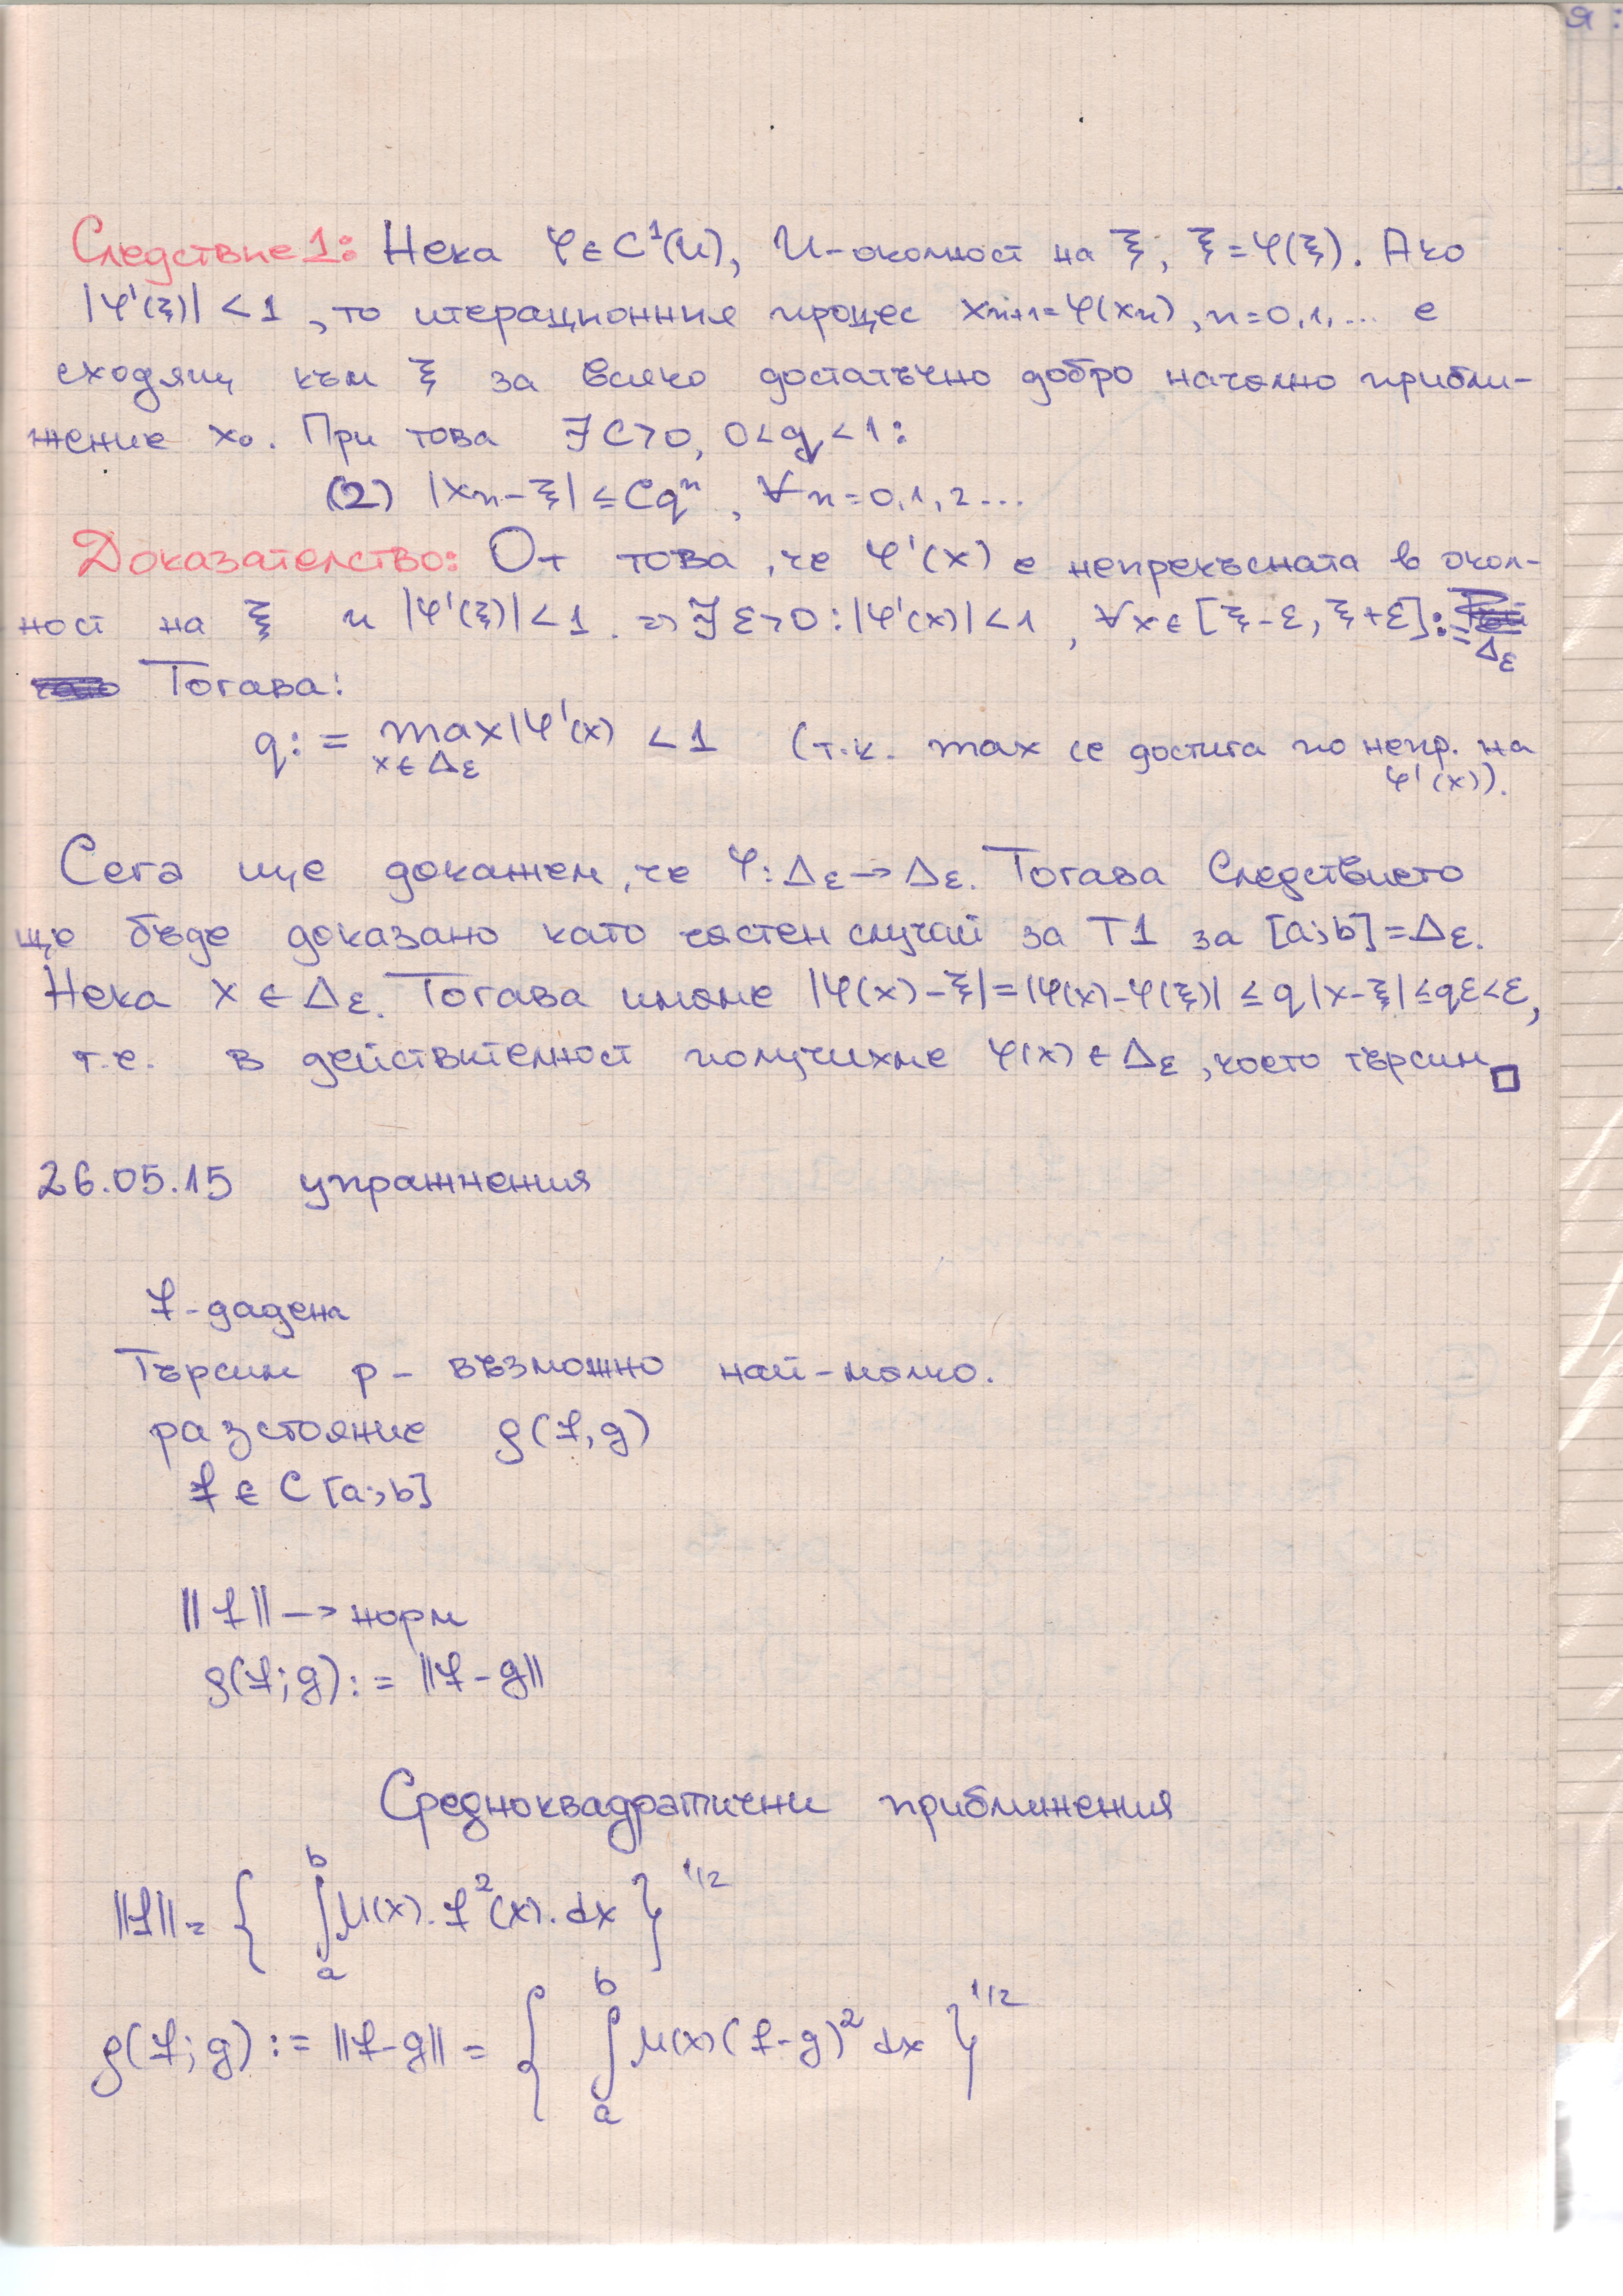 Следствие 1: Нека φ∈C¹(U), U-околност на ξ, ξ=φ(ξ). Ако
|φ'(ξ)|<1, то итерационния процес xₙ₊₁=φ(xₙ), n=0,1,... е
сходящ към ξ за всяко достатъчно добро начално прибли-
жение x₀. При това ∃C>0, 0<q<1:
(2) |xₙ-ξ|≤Cqⁿ, ∀n=0,1,2...
Доказателство: От това, че φ'(x) е непрекъсната в окол-
ност на ξ и |φ'(ξ)|<1. => ∃ε>0:|φ'(x)|<1, ∀x∈[ξ-ε, ξ+ε]:=
Δε
Тогава:
q:= max|φ'(x)| <1 (т.к. max се достига по непр. на
x∈Δε φ'(x)).
Сега ще докажем, че φ:Δε→Δε. Тогава Следствието
ще бъде доказано като частен случай за Т1 за [a;b]=Δε.
Нека x∈Δε. Тогава имаме |φ(x)-ξ|=|φ(x)-φ(ξ)|≤q|x-ξ|≤qε<ε,
т.е. в действителност получихме φ(x)∈Δε, което търсим □
26.05.15 упражнения
f-дадена
Търсим p- възможно най-малко.
разстояние ρ(f,g)
f∈C[a;b]
||f||→норм
ρ(f;g):= ||f-g||
Средноквадратични приближения
b
||f||= { ∫μ(x).f²(x).dx }^1/2
a
b
ρ(f;g):= ||f-g|| = { ∫μ(x)(f-g)²dx }^1/2
a